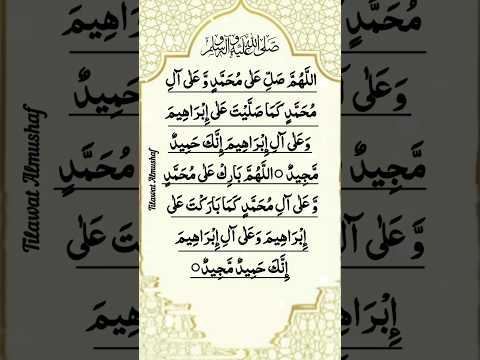 صَلَّى اللّٰهُ عَلَيْهِ وَآلِهٖ وَسَلَّم
اللَّهُمَّ صَلِّ عَلٰى مُحَمَّدٍ وَّ عَلٰى آلِ
مُحَمَّدٍ كَمَا صَلَّيْتَ عَلٰى إِبْرَاهِيمَ
وَعَلٰى آلِ إِبْرَاهِيمَ إِنَّكَ حَمِيدٌ
مَّجِيدٌ ○ اللَّهُمَّ بَارِكْ عَلٰى مُحَمَّدٍ
وَّ عَلٰى آلِ مُحَمَّدٍ كَمَا بَارَكْتَ عَلٰى
إِبْرَاهِيمَ وَعَلٰى آلِ إِبْرَاهِيمَ
إِنَّكَ حَمِيدٌ مَّجِيدٌ ○
Tilawat Almushaf